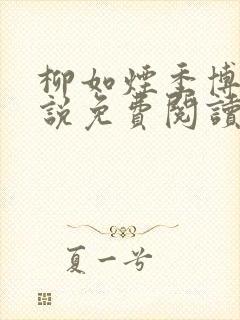 柳如煙季博
說免費閱讀
夏一兮